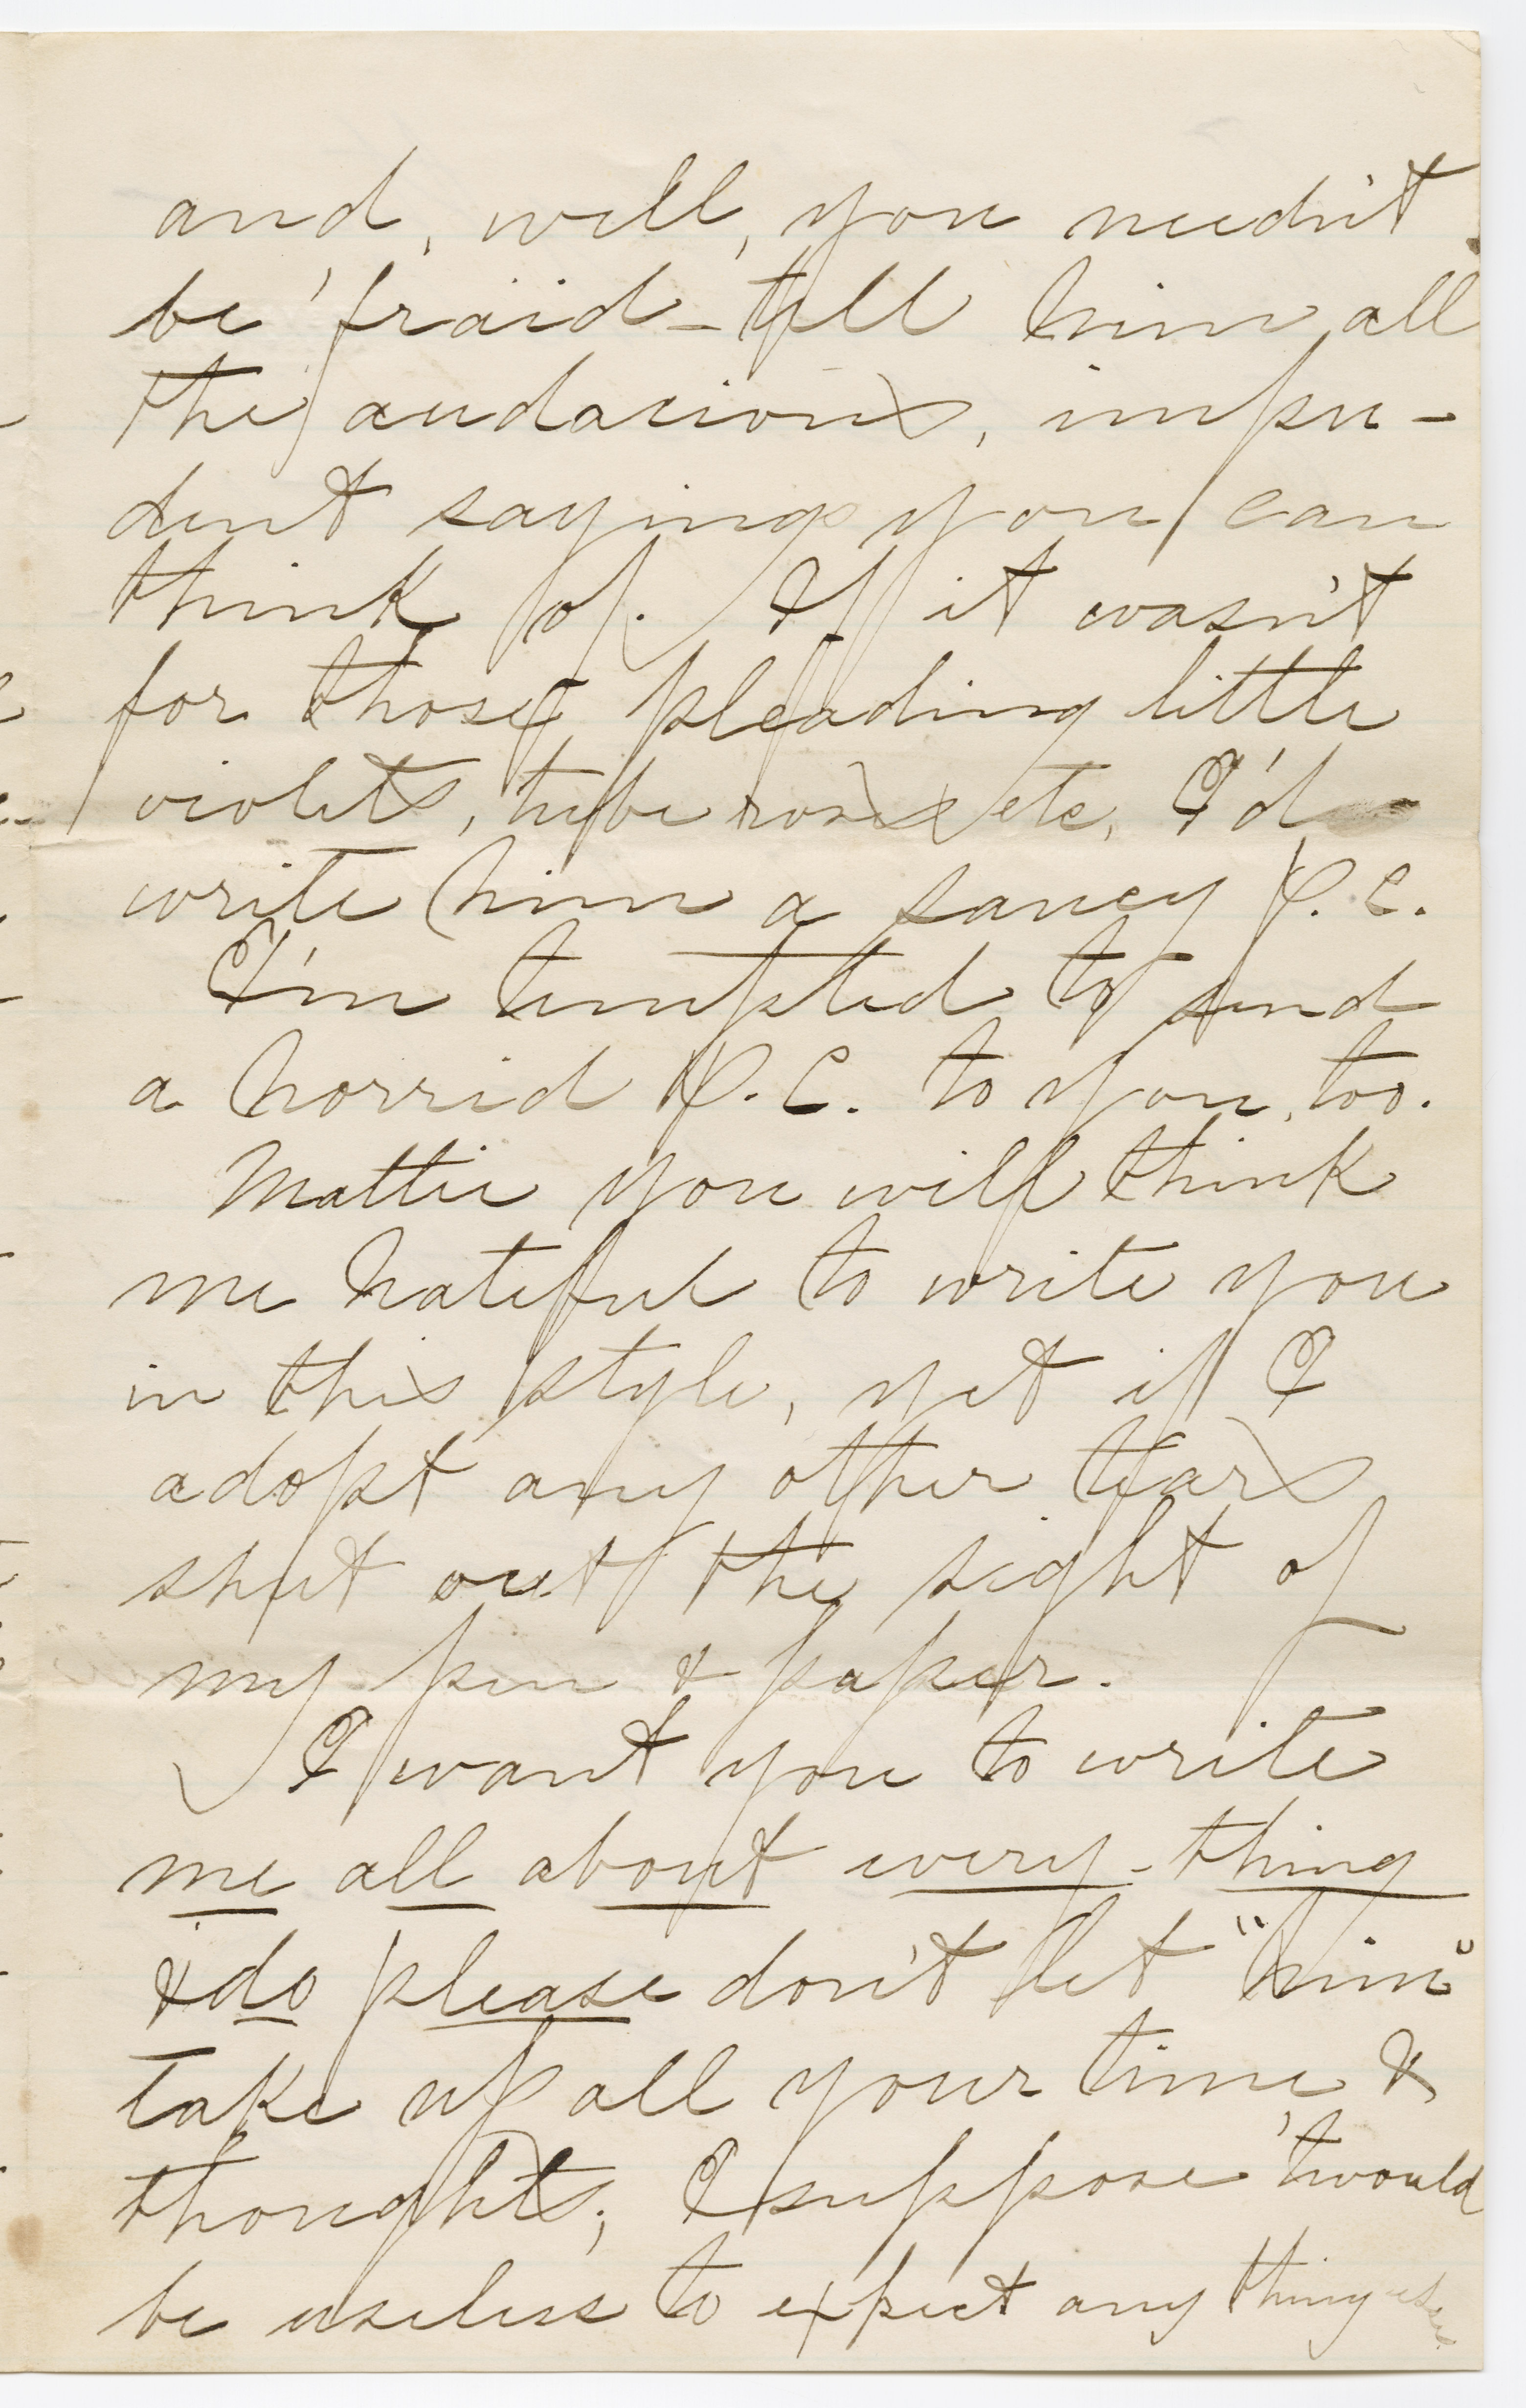 and, well, you needn't
be 'fraid - tell him all
the audacious, impu-
dent sayings you can
think of. If it wasn't
for those pleading little
violets, tube roses etc, I'd
write him a saucy P.C.
I'm tempted to send
a horrid P.C. to you, too.
Mattie you will think
me hateful to write you
in this style, yet if I
adopt any other tears
shut out the sight of
my pen & paper.
I want you to write
me all about every-thing
& do please don't let "him"
take up all your time &
thoughts; I suppose 'twould
be useless to expect any thing else